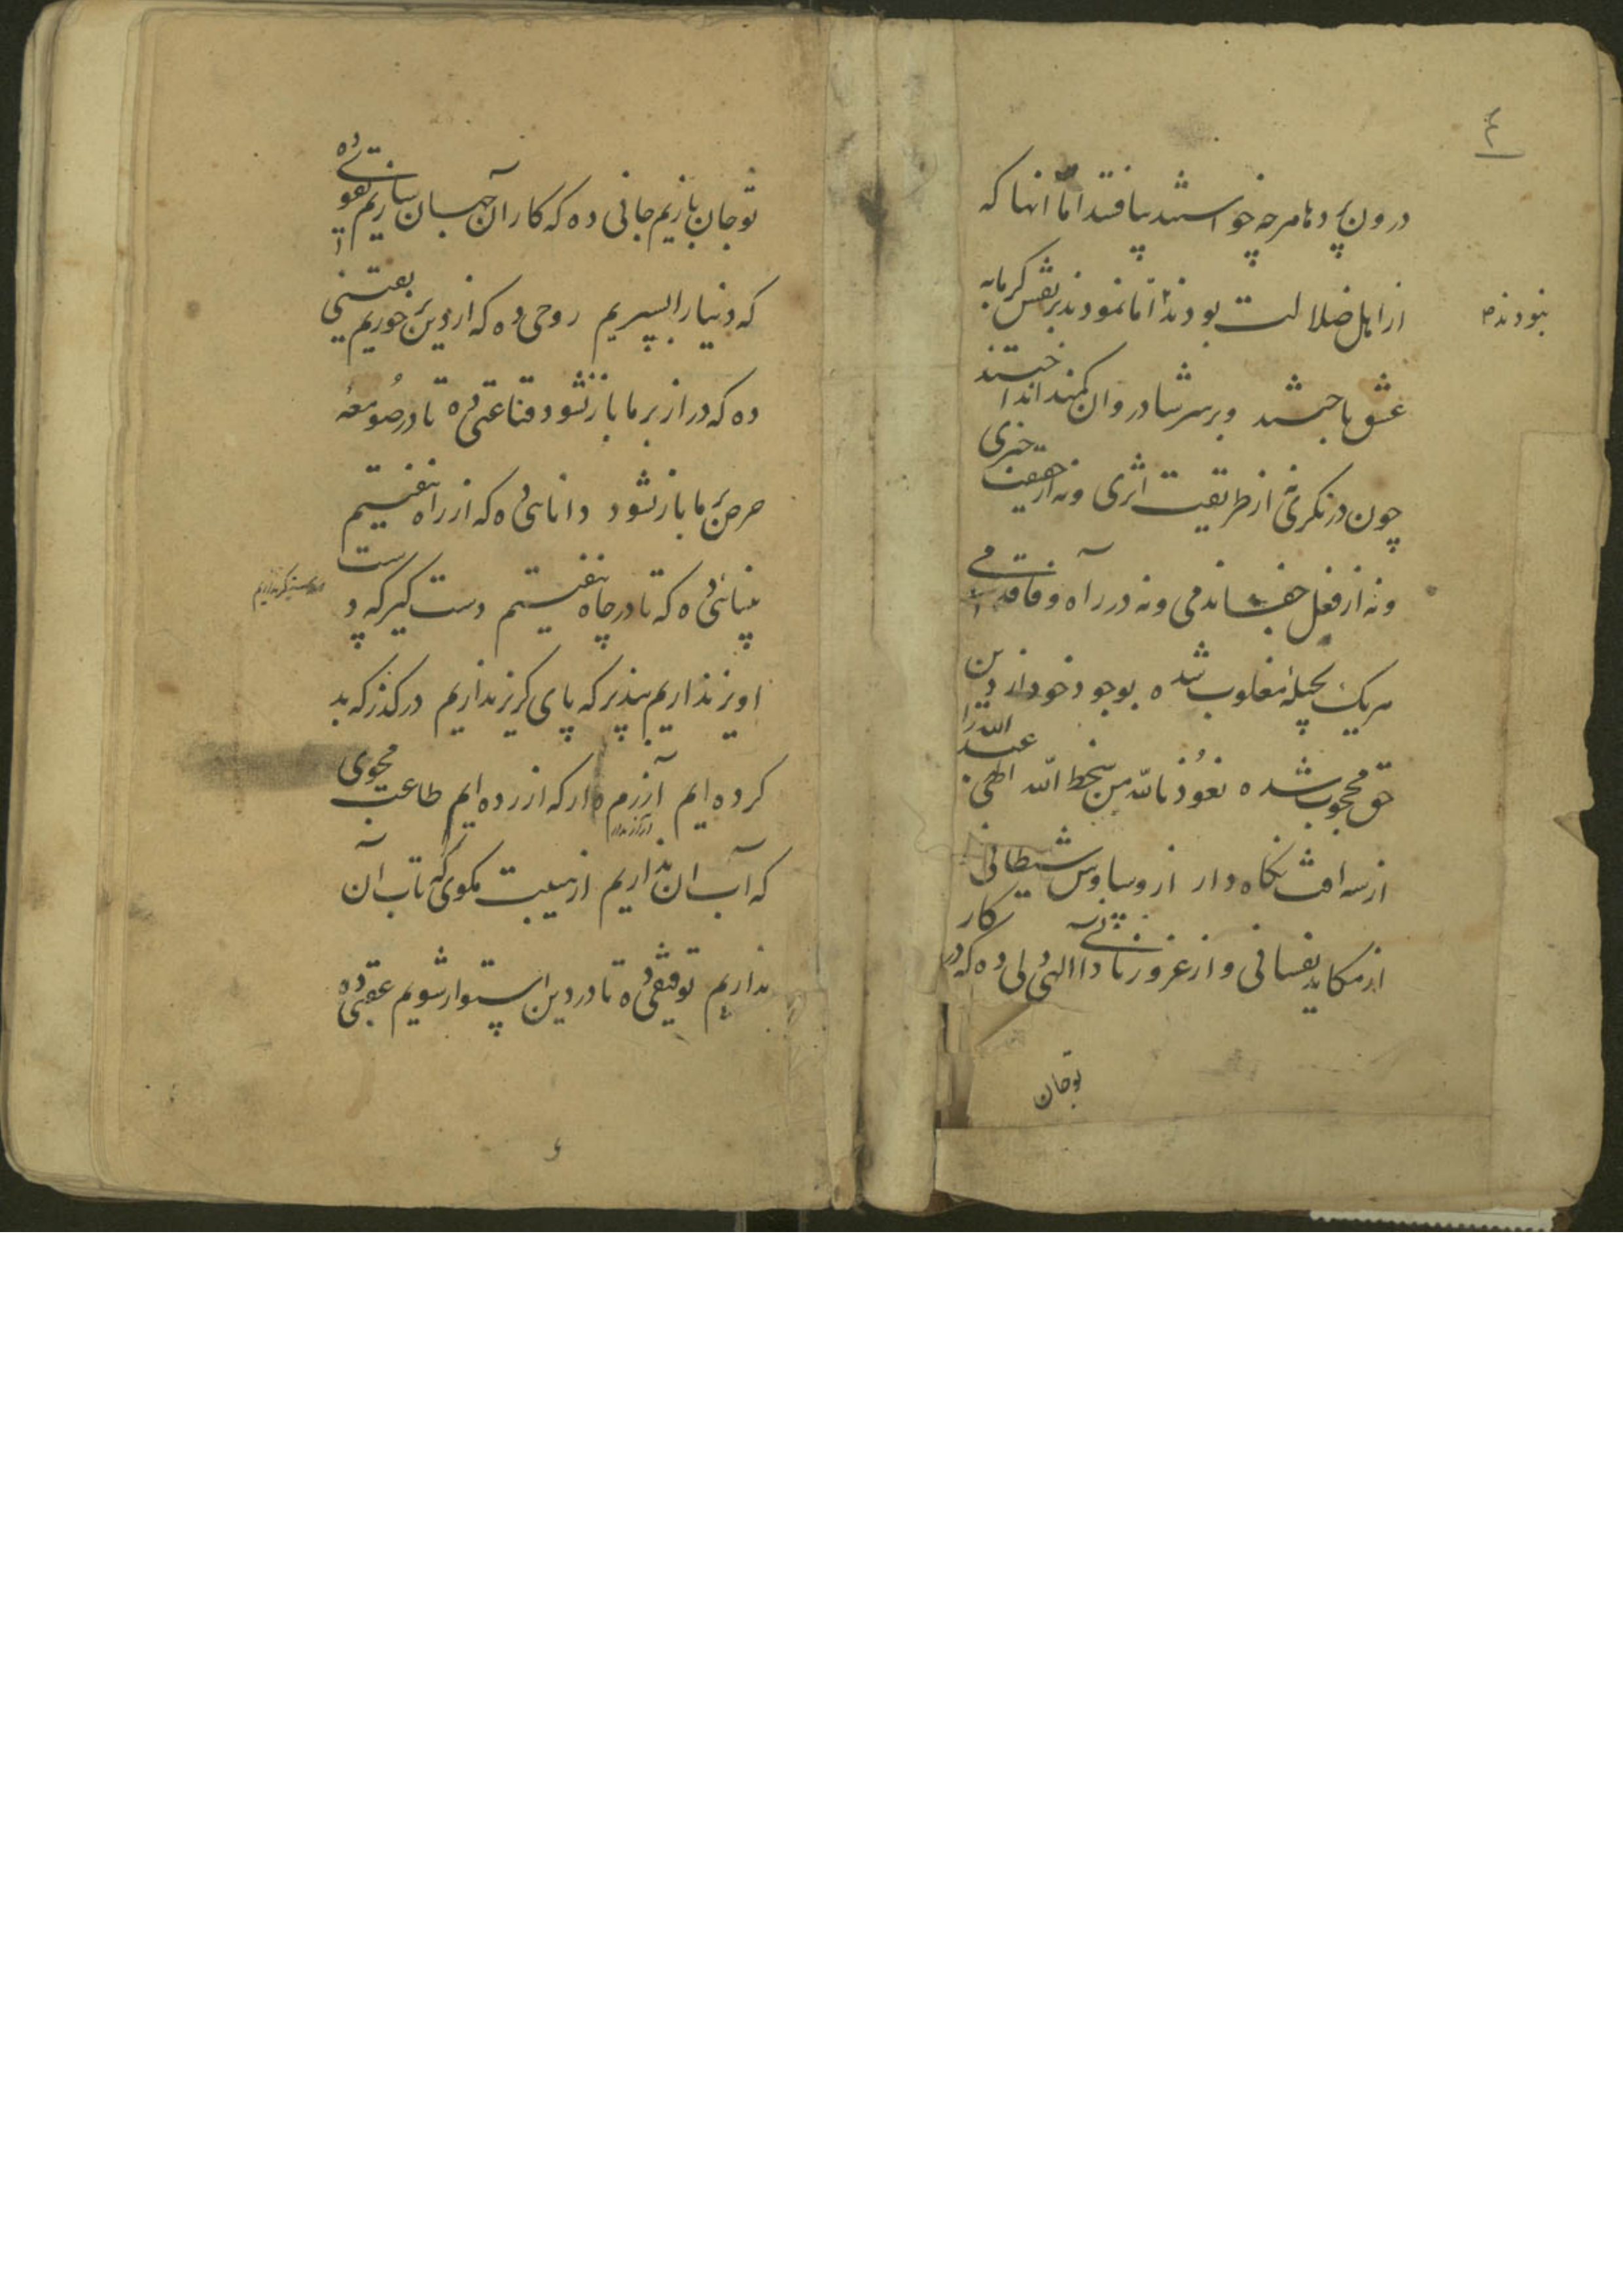 ۴
درون پردها هرچه خواستند نیافتند اما انها که
از اهل ضلالت بودند اما نمودند بر نفس گرمابه
نبودند
عشق باختند و بر سر شادروان کمند انداختند
چون در نگری نه از طریقت اثری و نه از حقیقت خبری
و نه از فعل جفا ندمی و نه در راه وفا قدمی
هریک بحیله مغلوب شده بوجود خود از دین
حق محجوب شده نعوذ بالله من سخط الله الهی عبدالله را
از سه افت نگاه دار از وساوس شیطانی
از مکاید نفسانی و از غرور نادانی الهی دلی ده که در کار
توجان
تو جان بازیم جانی ده که کار آن جهان سازیم تقوئی ده
که دنیا را بسپریم روحی ده که از دین بر خوریم یقینی
ده که در از بر ما باز نشود قناعتی ده تا در صومعهٔ
حرص بر ما باز نشود دانائی ده که از راه نیفتیم
بینائی ده که تا در چاه نیفتیم دست گیر که دست
اویز نداریم بپذیر که پای گریز نداریم درگذر که بد
کرده ایم آزرم دار که ازرده ایم طاعت مجوی
که آب ان نداریم از هیبت مگوی که تاب آن
نداریم توفیقی ده تا در دین استوار شویم عقبی ده